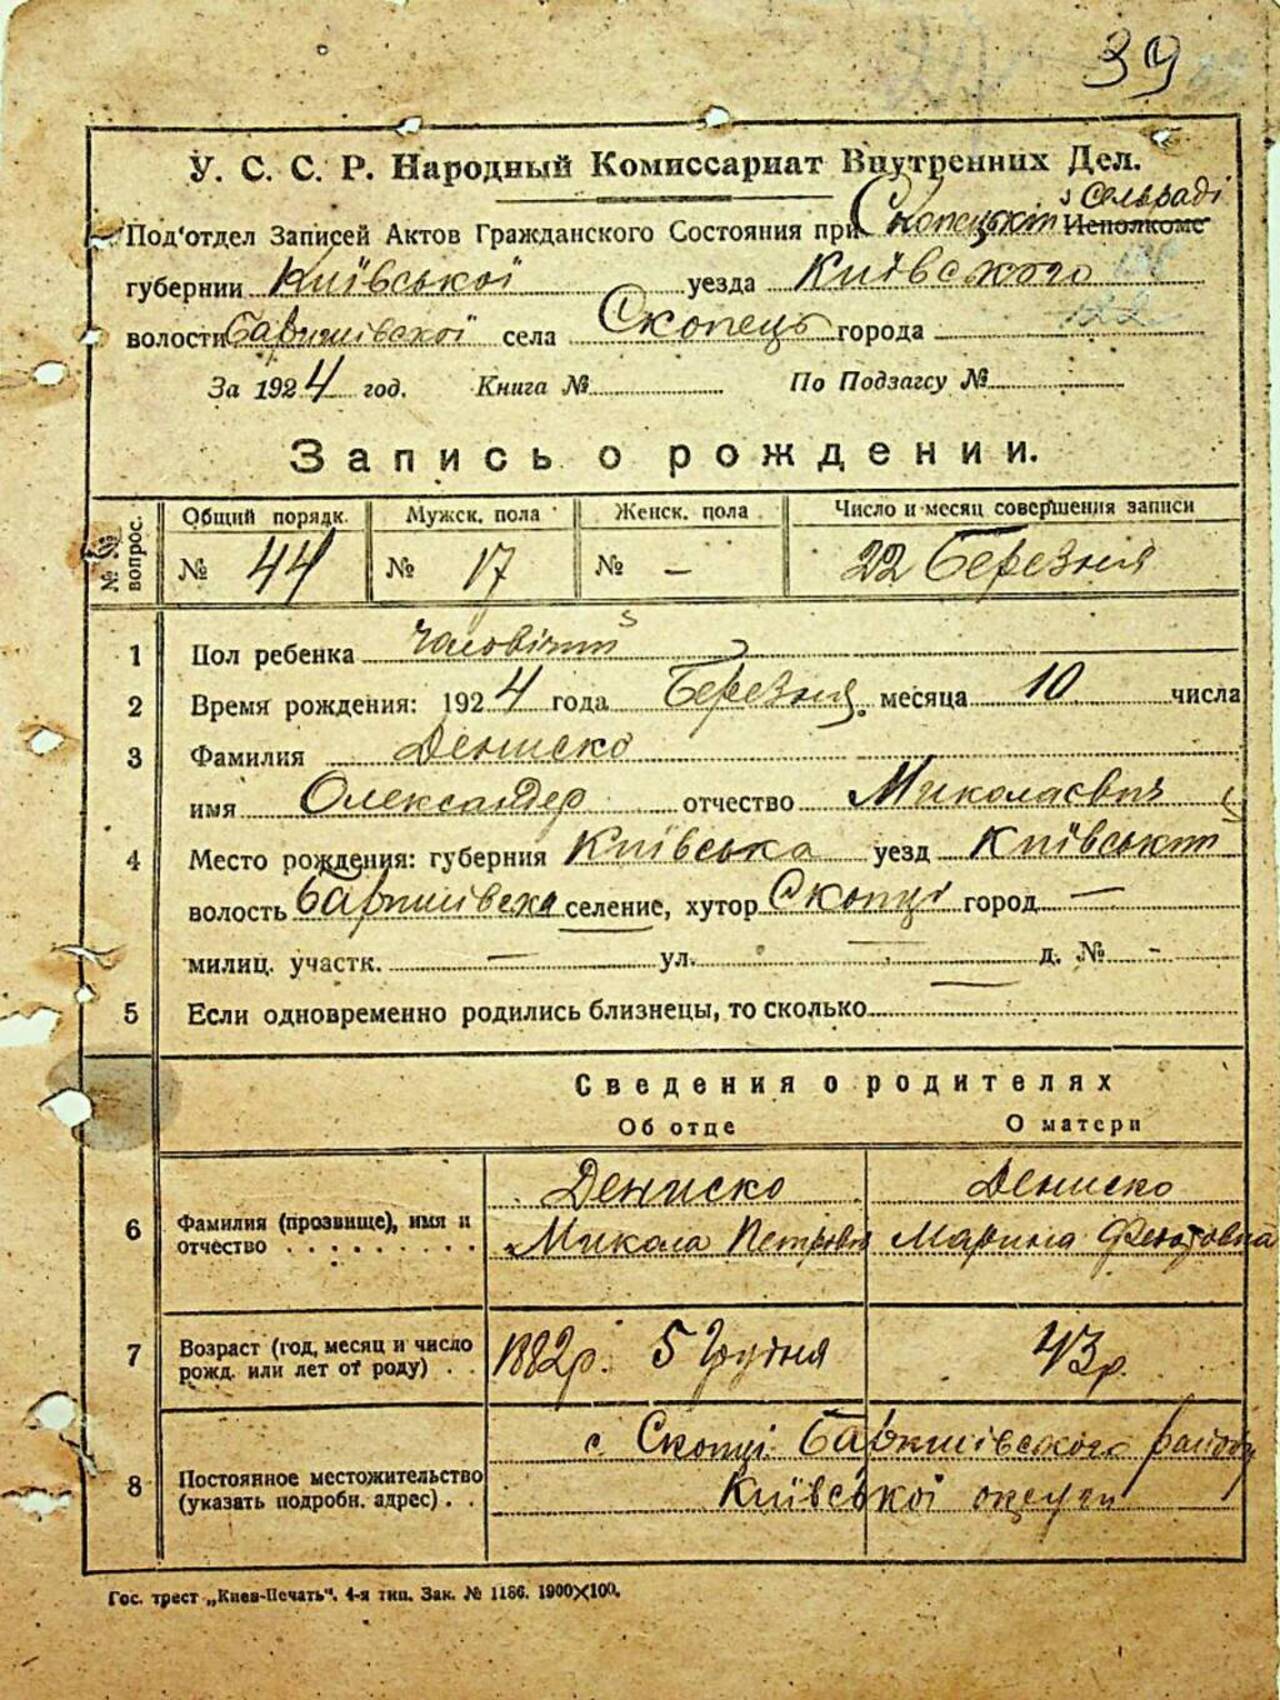 39
У. С. С. Р. Народный Комиссариат Внутренних Дел.
Сельраді
Под'отдел Записей Актов Гражданского Состояния при Скопецькій Исполкоме
губернии Київської уезда Київского
волости Баришівської села Скопець города 122
За 1924 год. Книга № По Подзагсу №
Запись о рождении.
№№ вопрос. Общий порядк. Мужск. пола Женск. пола Число и месяц совершения записи
№ 44 № 17 № — 22 Березня
1 Пол ребенка
2 Время рождения: 1924 года Березня месяца 10 числа
3 Фамилия Дениско
имя Олександер отчество Миколаєвич
4 Место рождения: губерния Київська уезд Київський
волость Баришівська селение, хутор Скопці город —
милиц. участк. — ул. — д. № -
5 Если одновременно родились близнецы, то сколько —
Сведения о родителях
Об отце О матери
Дениско Дениско
6 Фамилия (прозвище), имя и
отчество . . . . . . . . . Микола Петрович Марина
7 Возраст (год, месяц и число
рожд. или лет от роду) . . 1882р. 5 Грудня 43р.
с. Скопці Баришівского району
8 Постоянное местожительство
(указать подробн. адрес) . . Київської округи
Гос. трест „Киев-Печать". 4-я тип. Зак. № 1186. 1900×100.